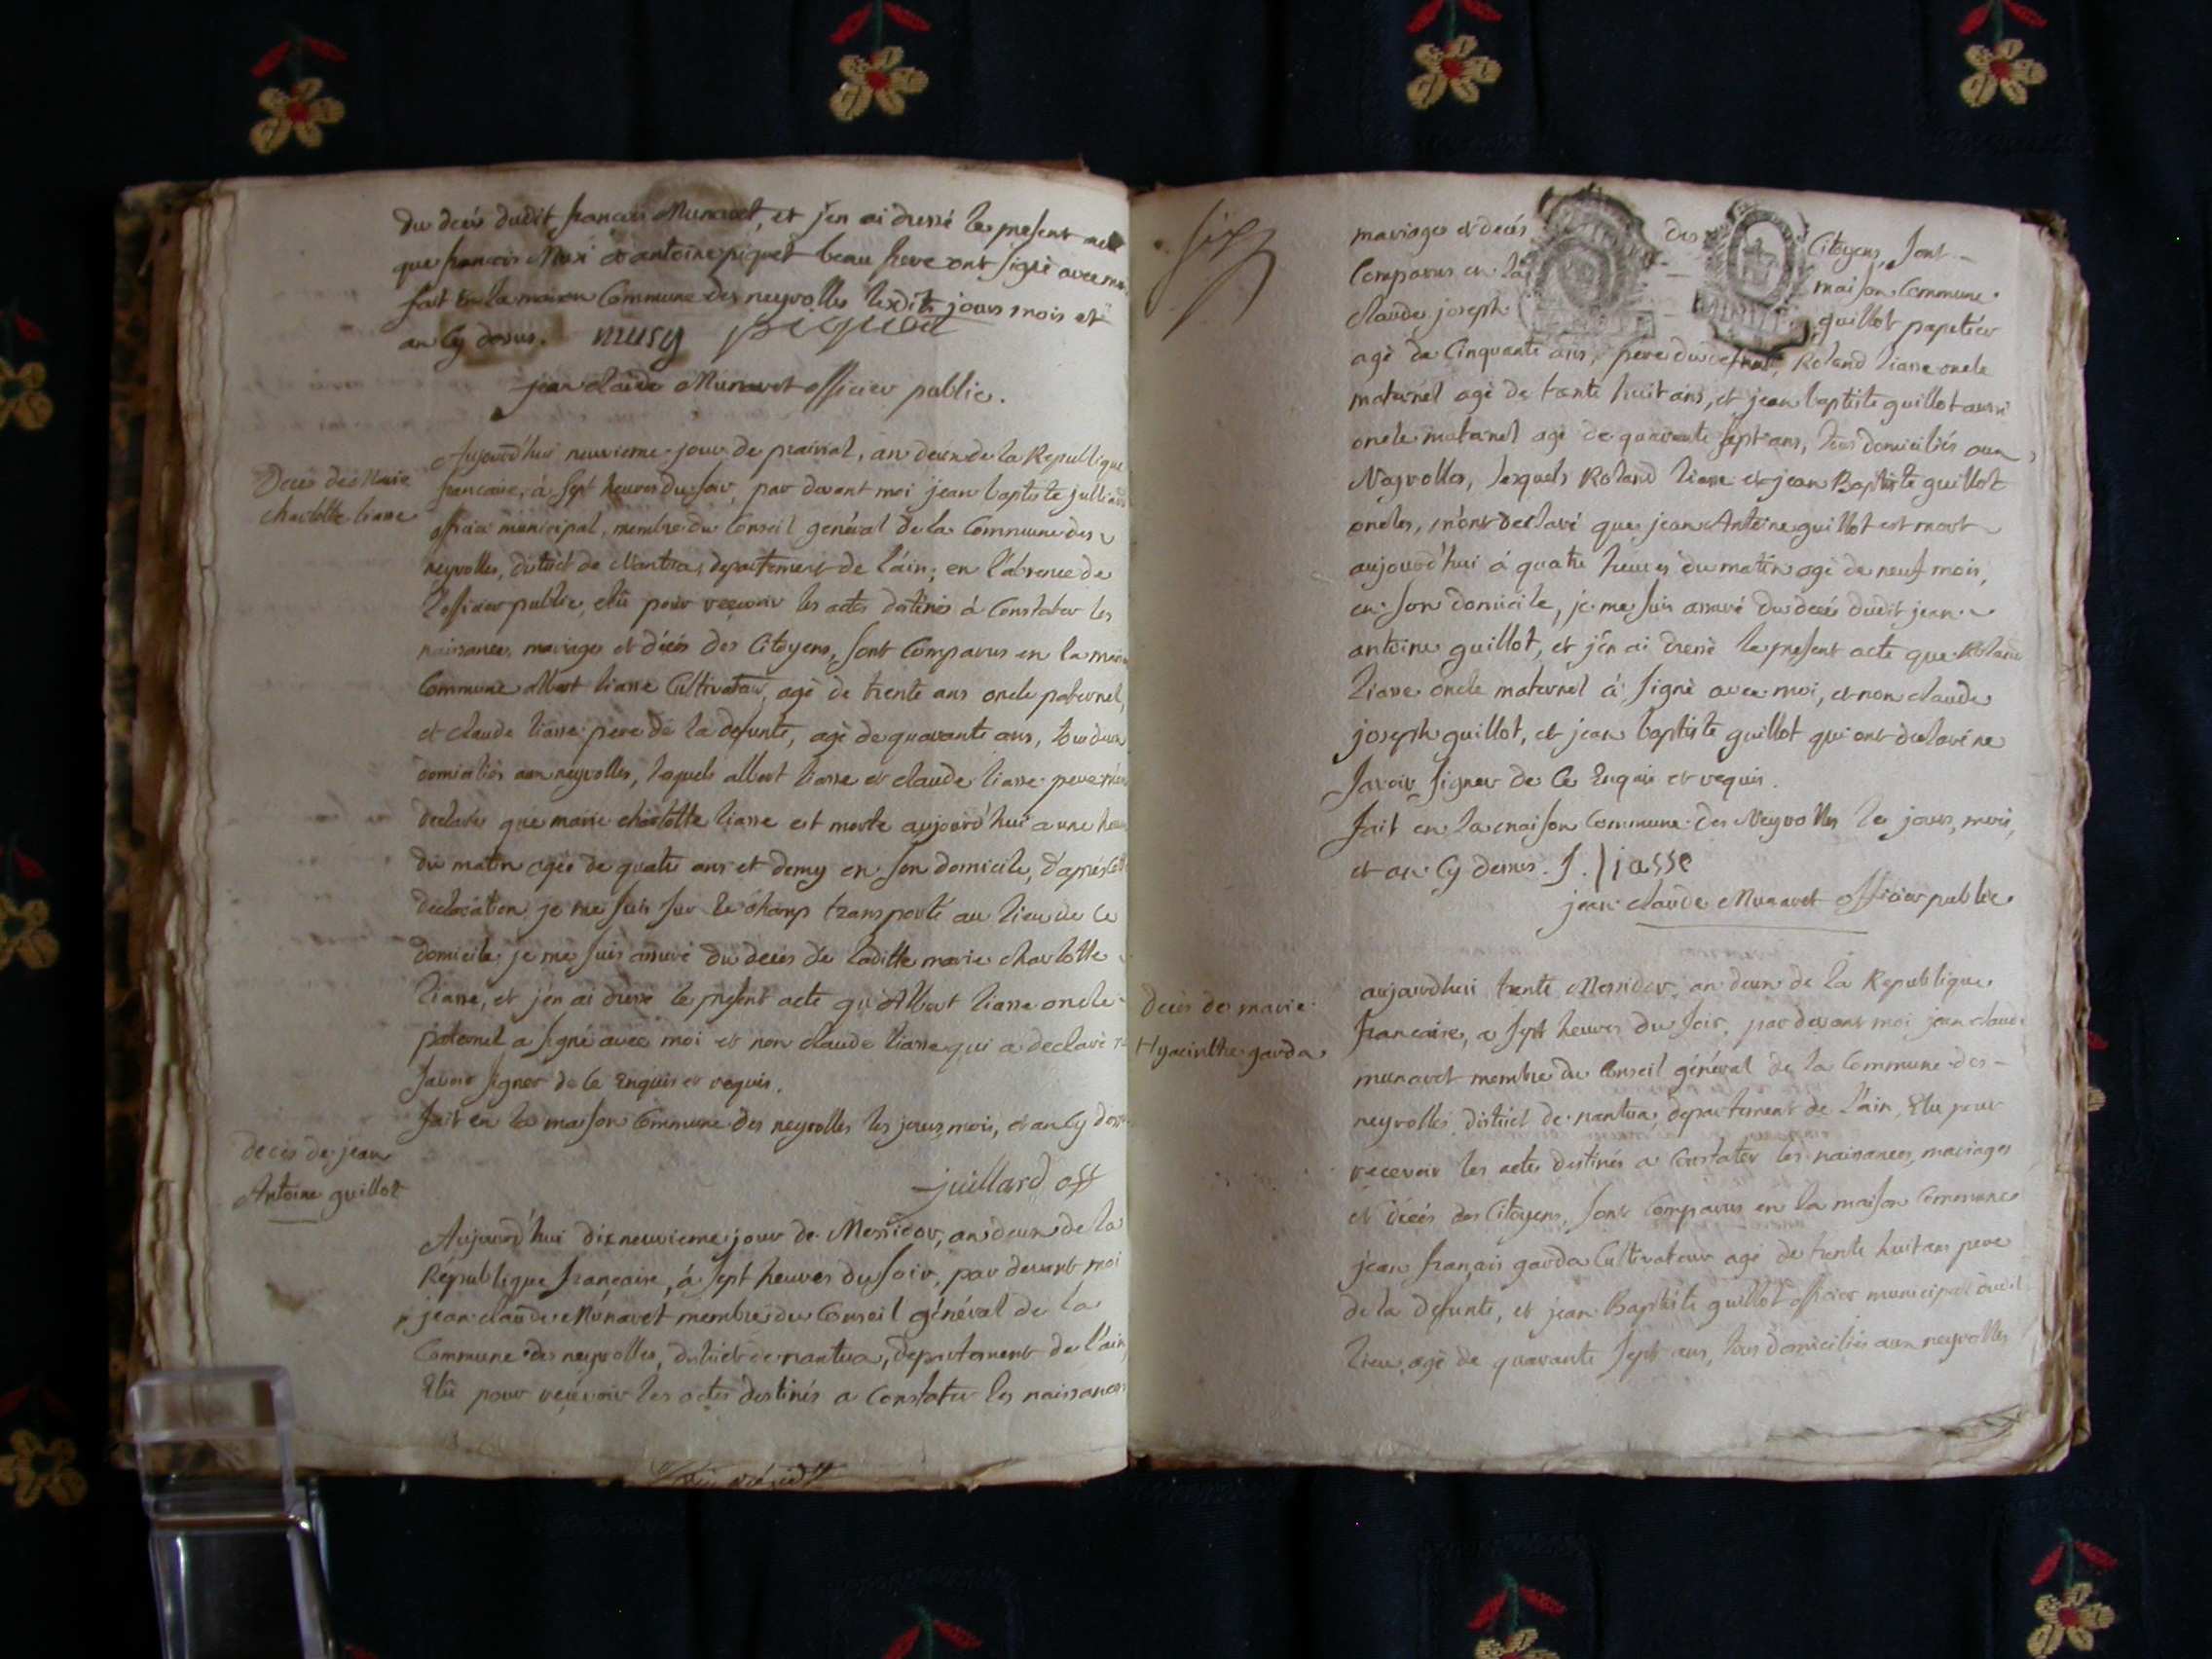 du decès dudit francois Munavet, et j'en ai dressé le present acte
que francois Musi et antoine piquet beau frere ont signé avec moi
fait en la maison Commune des neyrolles lesdits jours mois et
an Cy dessus. musy picquet
jean claude Munavet officier public.
Decès de Marie
charlotte liasse
Aujourd'hui neuvieme jour de prairial, an deux de la Republique
francaise, à sept heures du soir, par devant moi jean baptiste juillard
officier municipal, membre du Conseil genéral de la Commune des
neyrolles, district de Nantua, departement de l'ain, en l'absence de
l'officier public, elû pour recevoir les actes destinés à Constater les
naissances, mariages et décès des Citoyens, sont Comparus en la maison
Commune albert liasse Cultivateur, agé de trente ans oncle paternel,
et claude liasse pere de la defunte, agé de quarante ans, tous deux
domiciliés aux neyrolles, lesquels albert liasse et claude liasse pere m'ont
declarés que marie charlotte liasse est morte aujourd'hui a une heure
du matin agée de quatre ans et demy en son domicile, d'après cette
declaration je me suis sur le champ transporté au lieu de ce
domicile, je me suis assuré du decés de laditte marie charlotte
liasse, et j'en ai dressé le present acte qu'Albert liasse oncle
paternel a signé avec moi et non claude liasse qui a declaré ne
savoir signer de ce Enquis et requis.
fait en la maison Commune des neyrolles les jours, mois, et an Cy dessus
juillard off
decès de jean
Antoine guillot
Aujourd'hui dixneuvieme jour de Messidor, an deux de la
Républigue française, à sept heures du soir, par devant moi
jean claude Munavet membre du Conseil général de la
Commune des neyrolles, district de nantua, departement de l'ain
Elû pour recevoir les actes destinés a Constater les naissances
six
mariages et decés des Citoyens, sont
Comparus en la maison Commune
claude joseph guillot papetier
agé de Cinquante ans, pere du defunt, Roland liasse oncle
maternel agé de trente huit ans, et jean baptiste guillot aussi
oncle maternel agé de quarante sept ans, tous domiciliés aux
Neyrolles, lesquels Roland liasse et jean Baptiste guillot
oncles, m'ont declaré que jean Antoine guillot est mort
aujourd'hui á quatre heures du matin agé de neuf mois,
en son domicile, je me suis assuré du decés dudit jean
antoine guillot, et j'en ai dressé le present acte que Roland
liasse oncle maternel á signé avec moi, et non claude
joseph guillot, et jean baptiste guillot qui ont declaré ne
savoir signer de Ce Enquis et requis.
fait en la maison Commune des Neyrolles les jours, mois,
et an Cy dessus. J. ljasse
jean claude Munavet officier public
decès de marie
Hyacinthe garda
aujourdhui trente Messidor, an deux de la Republique
francaise, a sept heures du soir, par devant moi jean claude
munavet membre du Conseil général de la Commune des
neyrolles, district de nantua, departement de l'ain, Elu pour
recevoir les actes destinés a Constater les naissances, mariages
et décés des Citoyens, sont Comparus en la maison Commune
jean françois garda Cultivateur agé de trente huit ans pere
de la defunte, et jean Baptiste guillot officier municipal audit
lieu, agé de quarante sept ans, tous domiciliés aux neyrolles